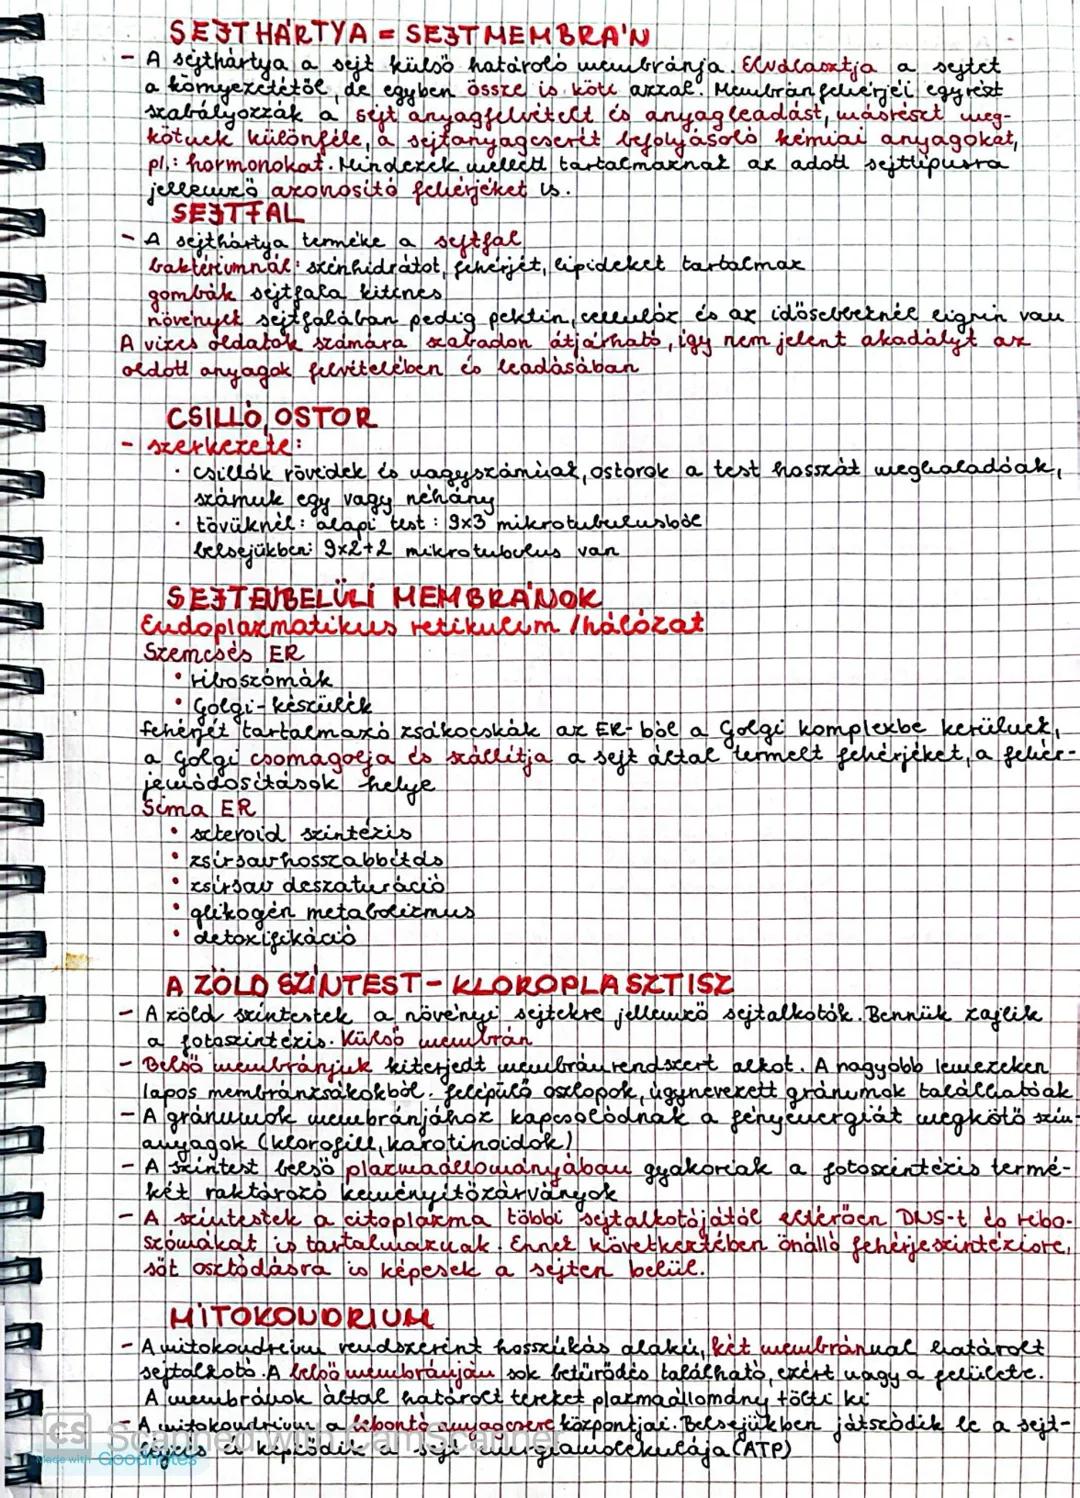 SEJTHÁRTYA = SEJTMEMBRÁN
- A sejthártya a sejt külső határoló membránja. Elválasztja a sejtet
a környezetétől, de egyben össze is köti azzal. Membránfehérjéi egyrészt
szabályozzák a sejt anyagfelvételt és anyagleadást, másrészt meg-
kötnek különféle, a sejtanyagcserét befolyásoló kémiai anyagokat,
pl.: hormonokat. Mindezek mellett tartalmaznak az adott sejttípusra
jellemző azonosító fehérjéket is.
SEJTFAL
- A sejthártya terméke a sejtfal
baktériumnál: szénhidrátot, fehérjét, lipideket tartalmaz
gombák sejtfala kitines
növények sejtfalában pedig pektin, cellulóz és az idősebbeknél lignin van
A vizes oldatok számára szabadon átjárható, így nem jelent akadályt az
oldott anyagok felvételében és leadásában
CSILLÓ, OSTOR
- szerkezete:
· csillók rövidek és nagyszámúak, ostorok a test hosszát meghaladóak,
számuk egy vagy néhány
· tövüknél: alapi test: 9x3 mikrotubulusból
belsejükben: 9x2+2 mikrotubulus van
SEJTENBELÜLI MEMBRÁNOK
Endoplazmatikus retikulum /hálózat
Szemcsés ER
• riboszómák
• Golgi-készülék
fehérjét tartalmazó zsákocskák az ER-ből a Golgi komplexbe kerülnek,
a Golgi csomagolja és szállítja a sejt által termelt fehérjéket, a fehér-
jemódosítások helye
Sima ER
• szteroid szintézis
• zsírsavhosszabbítás
• zsírsav deszaturáció
• glikogén metabolizmus
• detoxifikáció
A ZÖLD SZÍNTEST - KLOROPLASZTISZ
- A zöld színtestek a növényi sejtekre jellemző sejtalkotók. Bennük zajlik
a fotoszintézis. Külső membrán
- Belső membránjuk kiterjedt membránrendszert alkot. A nagyobb lemezeken
lapos membránzsákokból felépülő oszlopok, úgynevezett gránumok találhatóak
- A gránumok membránjához kapcsolódnak a fényenergiát megkötő szín-
anyagok (klorofill, karotinoidok)
- A színtest belső plazmaállományában gyakoriak a fotoszintézis termé-
két raktározó keményítőzárványok
- A színtestek a citoplazma többi sejtalkotójától eltérően DNS-t és ribo-
szómákat is tartalmaznak. Ennek következtében önálló fehérjeszintézisre,
sőt osztódásra is képesek a sejten belül.
MITOKONDRIUM
- A mitokondrium rendszerint hosszúkás alakú, két membránnal határolt
sejtalkotó. A belső membránján sok betűrődés található, ezért nagy a felülete.
A membránok által határolt tereket plazmaállomány tölti ki
- A mitokondrium a lebontó anyagcsere központjai. Belsejükben játszódik le a sejt-
légzés és képződik a sejt energiamolekulája (ATP)
CS Scanned with CamScanner
Made with Goodnotes